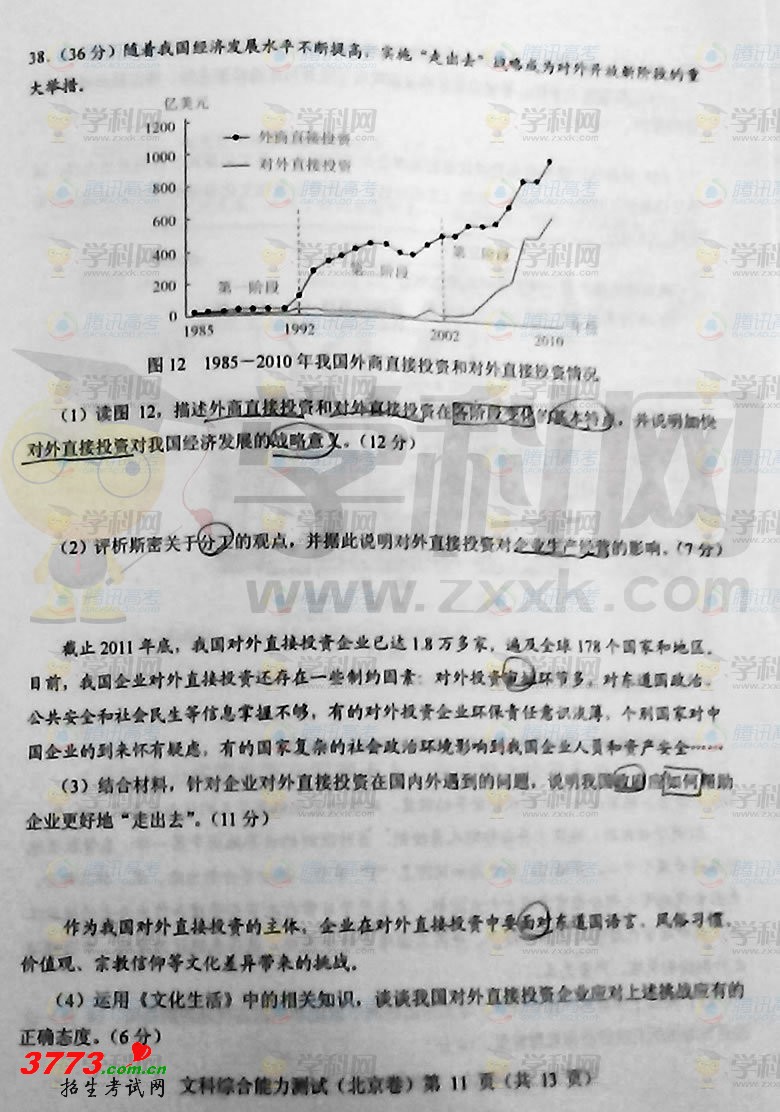 38.（36分）随着我国经济发展水平不断提高，实施“走出去”战略成为对外开放新阶段的重
大举措。
亿美元
1200
1000
800
600
400
200
0
外商直接投资
对外直接投资
第一阶段
第二阶段
第三阶段
1985
1992
2002
2010
年份
图12 1985－2010年我国外商直接投资和对外直接投资情况
（1）读图12，描述外商直接投资和对外直接投资在各阶段变化的基本特点，并说明加快
对外直接投资对我国经济发展的战略意义。（12分）
（2）评析斯密关于分工的观点，并据此说明对外直接投资对企业生产经营的影响。（7分）
截止2011年底，我国对外直接投资企业已达1.8万多家，遍及全球178个国家和地区。
目前，我国企业对外直接投资还存在一些制约因素：对外投资审批环节多，对东道国政治、
公共安全和社会民生等信息掌握不够，有的对外投资企业环保责任意识淡薄，个别国家对中
国企业的到来怀有疑虑，有的国家复杂的社会政治环境影响到我国企业人员和资产安全……
（3）结合材料，针对企业对外直接投资在国内外遇到的问题，说明我国政府应如何帮助
企业更好地“走出去”。（11分）
作为我国对外直接投资的主体，企业在对外直接投资中要面对东道国语言、风俗习惯、
价值观、宗教信仰等文化差异带来的挑战。
（4）运用《文化生活》中的相关知识，谈谈我国对外直接投资企业应对上述挑战应有的
正确态度。（6分）
文科综合能力测试（北京卷）第 11 页（共 13 页）
3773.com.cn
招生考试网
学科网
www.zxxk.com
腾讯高考